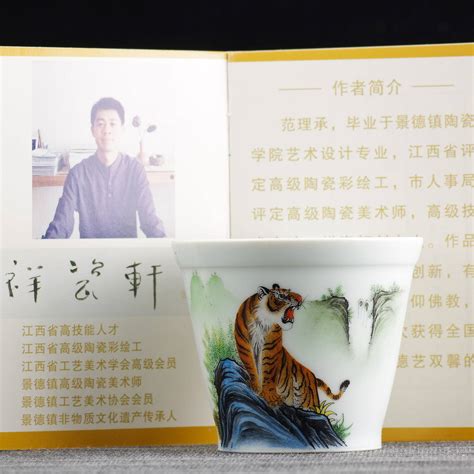 祥瓷軒
江西省高技能人才
江西省高级陶瓷彩绘工
江西省工艺美术学会高级会员
景德镇高级陶瓷美术师
江西省工艺美术协会会员
景德镇非物质文化遗产传承人
作者简介
范理承，毕业于景德镇陶瓷
学院艺术设计专业，江西省评
定高级陶瓷彩绘工，市人事局
评定高级陶瓷美术师，高级技
作品
创新，
仰佛教，
次获得全国
德艺双馨的